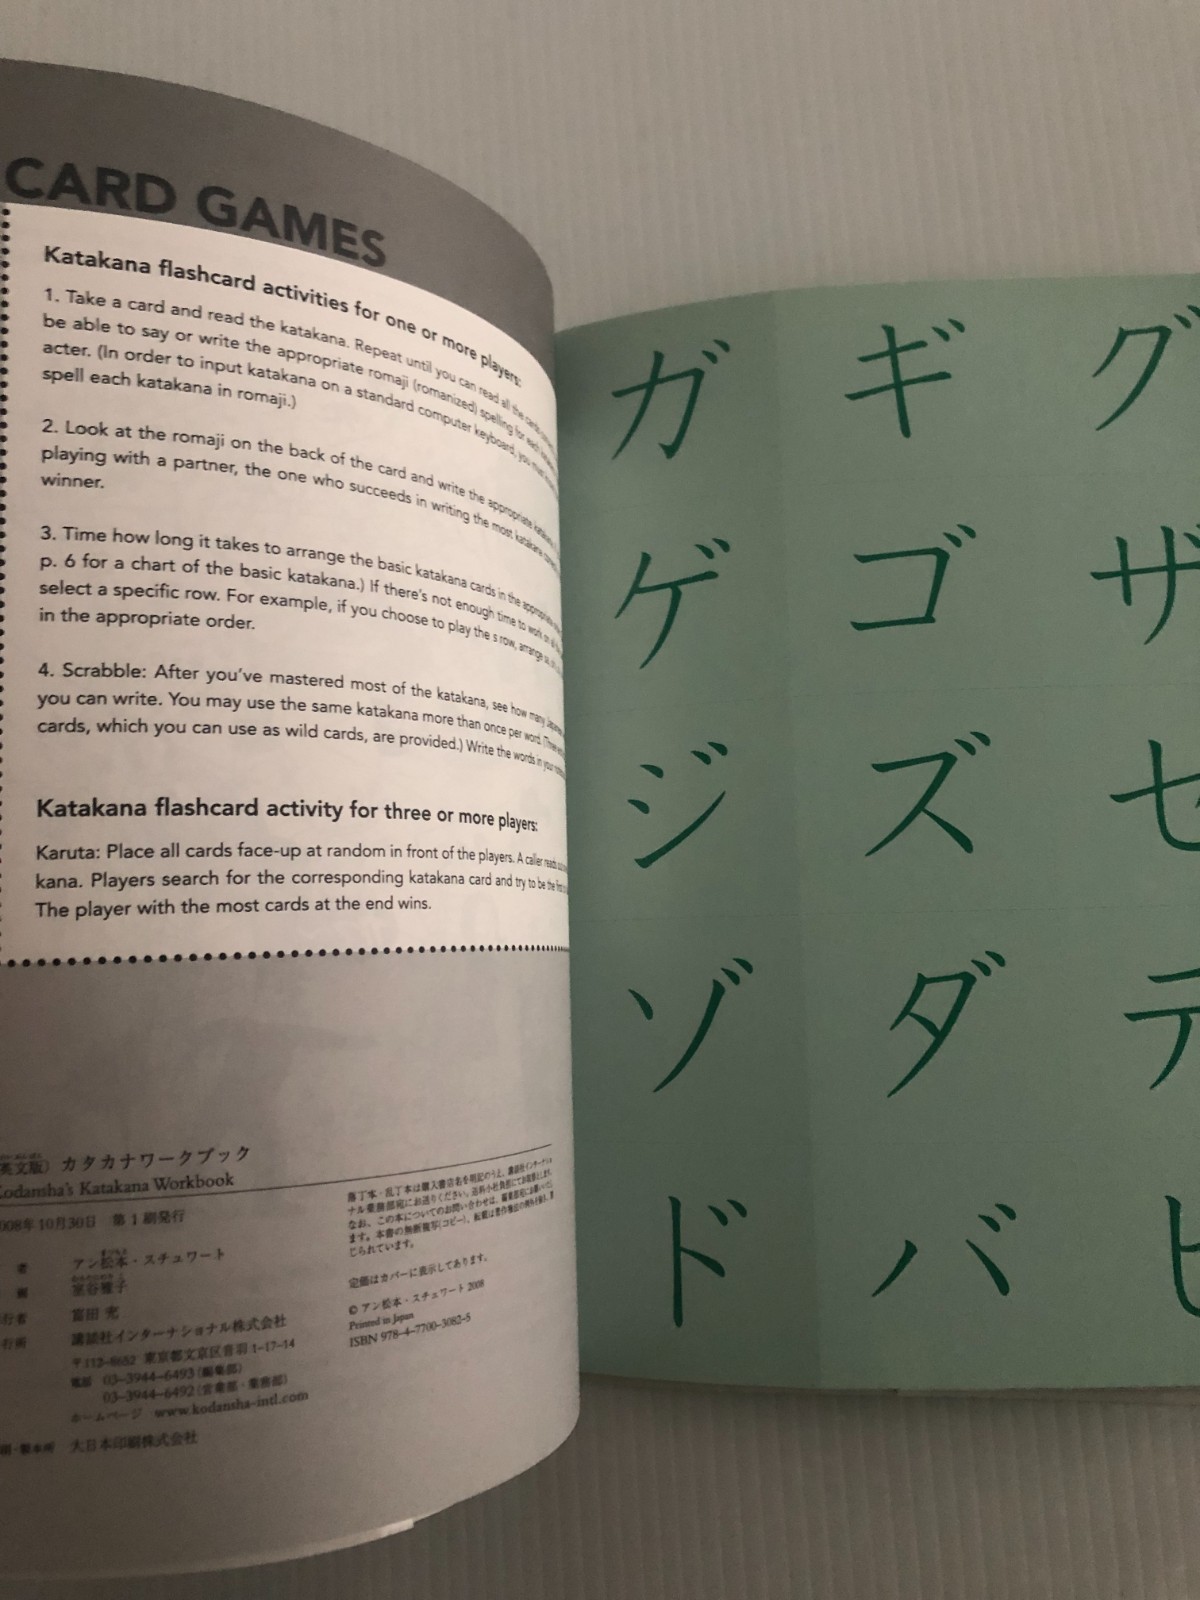 CARD GAMES
Katakana flashcard activities for one or more players:
1. Take a card and read the katakana. Repeat until you can read all the cards
be able to say or write the appropriate romaji (romanized) spelling for each
acter. (In order to input katakana on a standard computer keyboard, you must
spell each katakana in romaji.)
2. Look at the romaji on the back of the card and write the appropriate
playing with a partner, the one who succeeds in writing the most katakana
winner.
3. Time how long it takes to arrange the basic katakana cards in the appropriate
p. 6 for a chart of the basic katakana.) If there's not enough time to work on
select a specific row. For example, if you choose to play the s row, arrange
in the appropriate order.
4. Scrabble: After you've mastered most of the katakana, see how many
you can write. You may use the same katakana more than once per word. (Three
cards, which you can use as wild cards, are provided.) Write the words in your
Katakana flashcard activity for three or more players:
Karuta: Place all cards face-up at random in front of the players. A caller reads
kana. Players search for the corresponding katakana card and try to be the first
The player with the most cards at the end wins.
英文版）カタカナワークブック
Kodansha's Katakana Workbook
2008年10月30日 第1刷発行
者 アン松本・スチュワート
室谷雅子
行者 富田 充
行所 講談社インターナショナル株式会社
〒112-8652 東京都文京区音羽 1-17-14
電話 03-3944-6493（編集部）
03-3944-6492（営業部・業務部）
ホームページ www.kodansha-intl.com
刷・製本所 大日本印刷株式会社
落丁本・乱丁本は購入書店名を明記のうえ、講談社インターナショ
ナル業務部宛にお送りください。送料小社負担にてお取替えします。
なお、この本についてのお問い合わせは、編集部宛にお願いいたし
ます。本書の無断複写（コピー）、転載は著作権法の例外を除き、禁
じられています。
定価はカバーに表示してあります。
© アン松本・スチュワート 2008
Printed in Japan
ISBN 978-4-7700-3082-5
ガ ギ グ
ゲ ゴ ザ
ジ ズ セ
ゾ ダ テ
ド バ ヒ